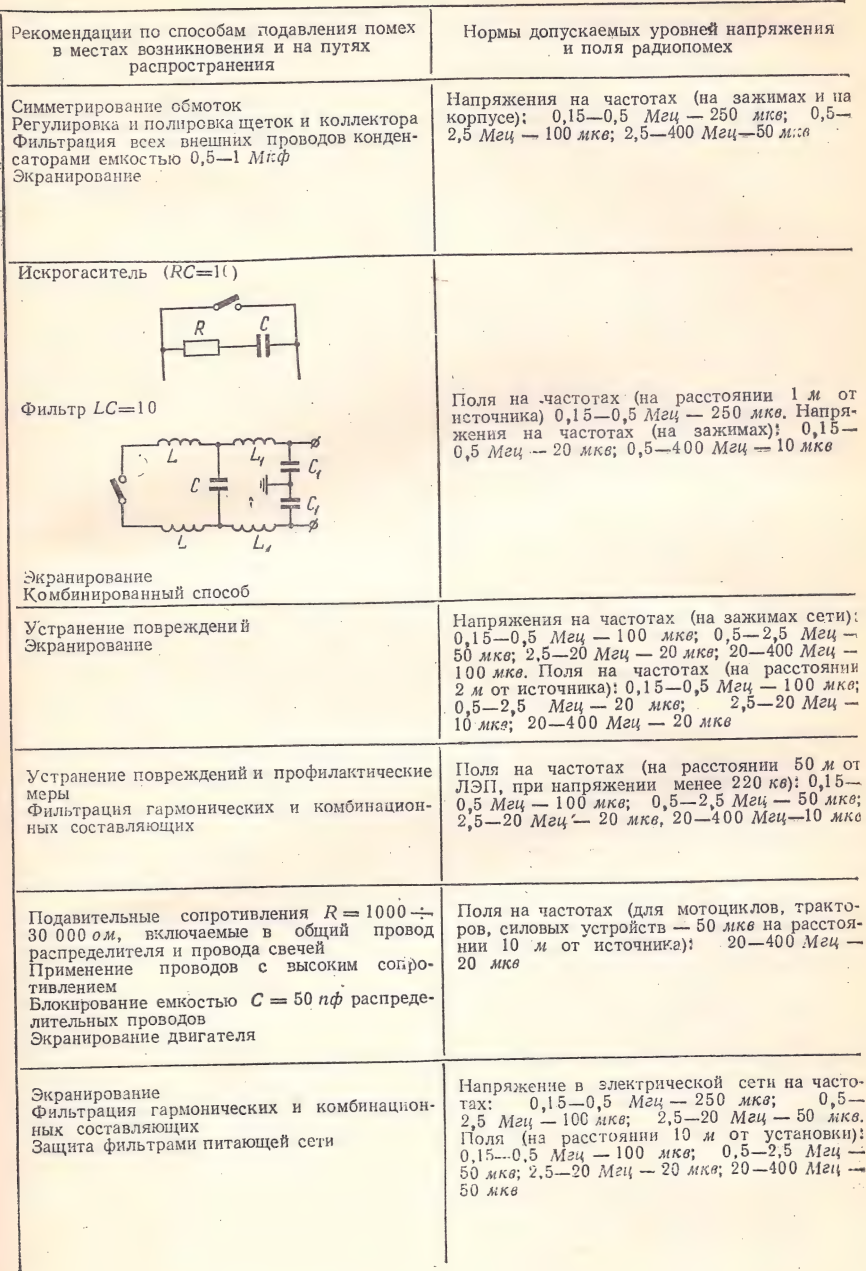 Рекомендации по способам подавления помех
в местах возникновения и на путях
распространения
Нормы допускаемых уровней напряжения
и поля радиопомех
Симметрирование обмоток
Регулировка и полировка щеток и коллектора
Фильтрация всех внешних проводов конден-
саторами емкостью 0,5—1 Мкф
Экранирование
Напряжения на частотах (на зажимах и на
корпусе): 0,15—0,5 Мгц — 250 мкв; 0,5—
2,5 Мгц — 100 мкв; 2,5—400 Мгц—50 мкв
Искрогаситель (RC=10)
R
C
Фильтр LC=10
L
L₁
C
C₁
C₁
L
L₁
Экранирование
Комбинированный способ
Поля на частотах (на расстоянии 1 м от
источника) 0,15—0,5 Мгц — 250 мкв. Напря-
жения на частотах (на зажимах): 0,15—
0,5 Мгц — 20 мкв; 0,5—400 Мгц — 10 мкв
Устранение повреждений
Экранирование
Напряжения на частотах (на зажимах сети):
0,15—0,5 Мгц — 100 мкв; 0,5—2,5 Мгц —
50 мкв; 2,5—20 Мгц — 20 мкв; 20—400 Мгц —
100 мкв. Поля на частотах (на расстоянии
2 м от источника): 0,15—0,5 Мгц — 100 мкв;
0,5—2,5 Мгц — 20 мкв; 2,5—20 Мгц —
10 мкв; 20—400 Мгц — 20 мкв
Устранение повреждений и профилактические
меры
Фильтрация гармонических и комбинацион-
ных составляющих
Поля на частотах (на расстоянии 50 м от
ЛЭП, при напряжении менее 220 кв): 0,15—
0,5 Мгц — 100 мкв; 0,5—2,5 Мгц — 50 мкв;
2,5—20 Мгц — 20 мкв, 20—400 Мгц—10 мкв
Подавительные сопротивления R = 1000 ÷
30 000 ом, включаемые в общий провод
распределителя и провода свечей
Применение проводов с высоким сопро-
тивлением
Блокирование емкостью C = 50 пф распреде-
лительных проводов
Экранирование двигателя
Поля на частотах (для мотоциклов, тракто-
ров, силовых устройств — 50 мкв на расстоя-
нии 10 м от источника): 20—400 Мгц —
20 мкв
Экранирование
Фильтрация гармонических и комбинацион-
ных составляющих
Защита фильтрами питающей сети
Напряжение в электрической сети на часто-
тах: 0,15—0,5 Мгц — 250 мкв; 0,5—
2,5 Мгц — 100 мкв; 2,5—20 Мгц — 50 мкв.
Поля (на расстоянии 10 м от установки):
0,15—0,5 Мгц — 100 мкв; 0,5—2,5 Мгц —
50 мкв; 2,5—20 Мгц — 20 мкв; 20—400 Мгц —
50 мкв